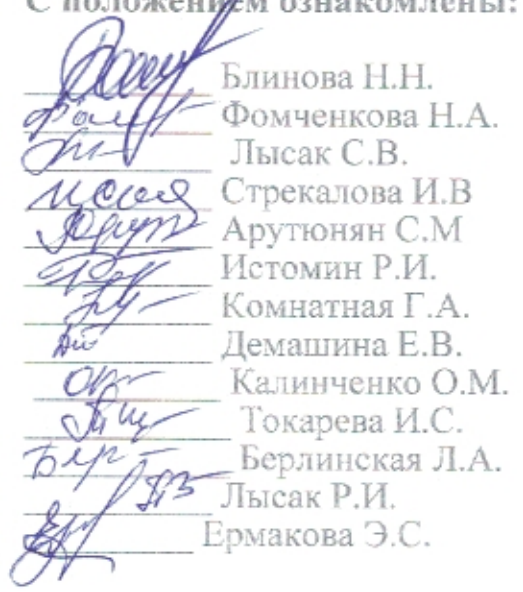 С положением ознакомлены:
Блинова Н.Н.
Фомченкова Н.А.
Лысак С.В.
Стрекалова И.В
Арутюнян С.М
Истомин Р.И.
Комнатная Г.А.
Демашина Е.В.
Калинченко О.М.
Токарева И.С.
Берлинская Л.А.
Лысак Р.И.
Ермакова Э.С.